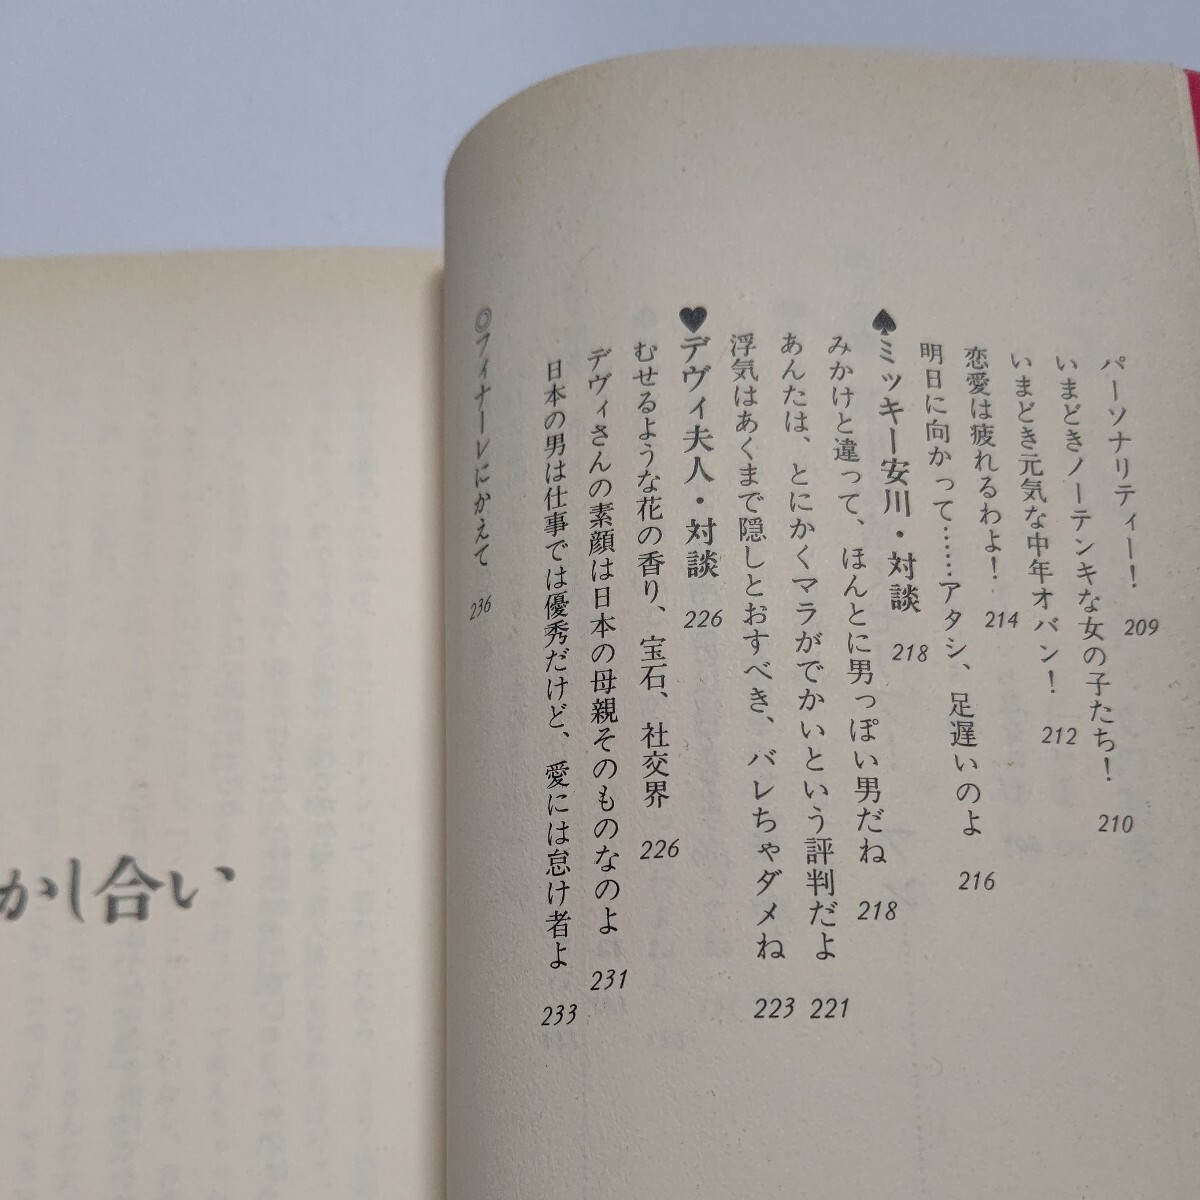 パーソナリティー! 209
いまどきノーテンキな女の子たち! 210
いまどき元気な中年オバン! 212
恋愛は疲れるわよ! 214
明日に向かって……アタシ、足遅いのよ 216
♠ミッキー安川・対談 218
みかけと違って、ほんとに男っぽい男だね 218
あんたは、とにかくマラがでかいという評判だよ 221
浮気はあくまで隠しとおすべき、バレちゃダメね 223
♥デヴィ夫人・対談 226
むせるような花の香り、宝石、社交界 226
デヴィさんの素顔は日本の母親そのものなのよ 231
日本の男は仕事では優秀だけど、愛には怠け者よ 233
◎フィナーレにかえて 236
かし合い